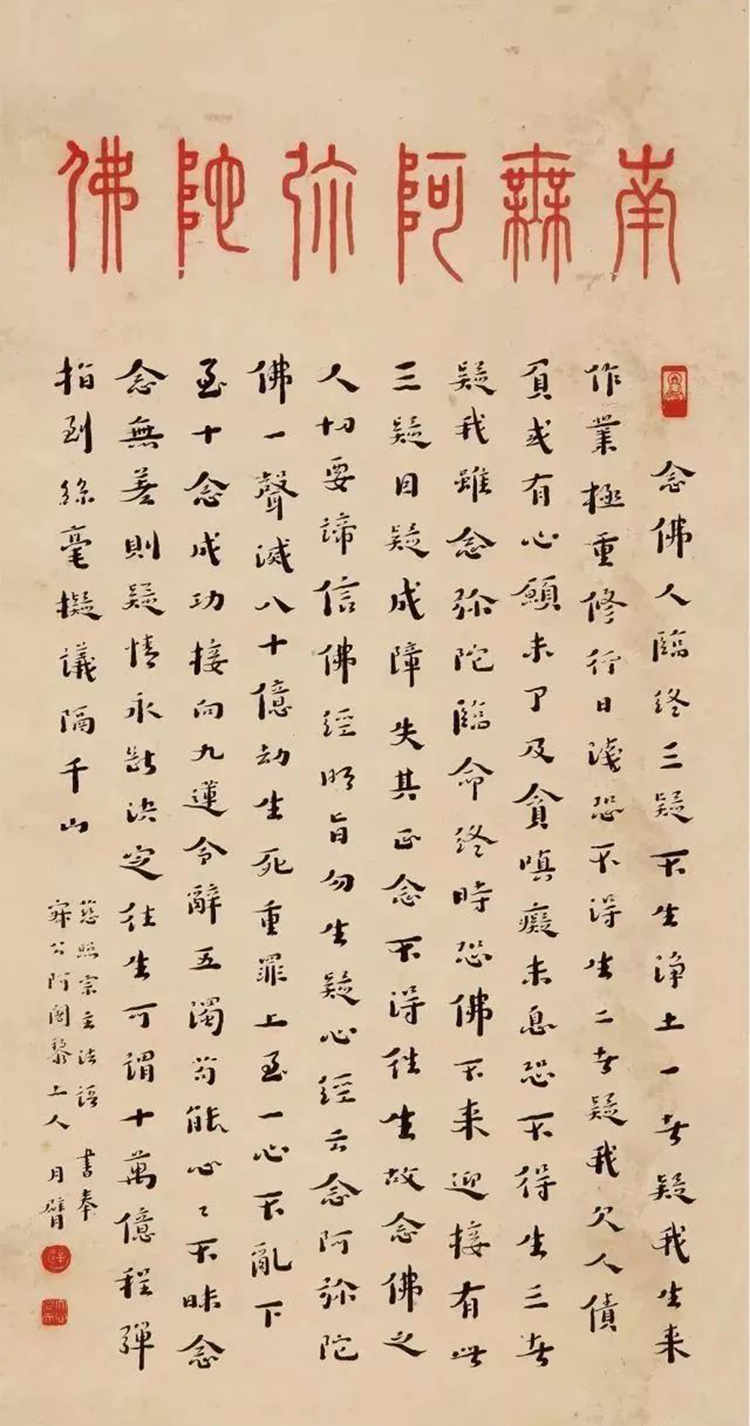 南無阿弥陀佛
念佛人臨终三疑不生浄土一者疑我生来
作業極重修行日淺恐不得生二者疑我欠人債
負或有心願未了及貪嗔癡未息恐不得生三者
疑我雖念弥陀臨命终時恐佛不来迎接有此
三疑因疑成障失其正念不得往生故念佛之
人切要諦信佛經明旨勿生疑心經云念阿弥陀
佛一聲滅八十億劫生死重罪上至一心不亂下
至十念成功接向九蓮令辭五濁苟能心々不昧念
念無差則疑情永斷決定往生可謂十萬億程彈
指到絲毫擬議隔千山
慈照宗主法語 書奉
寂公阿闍黎上人 月臂